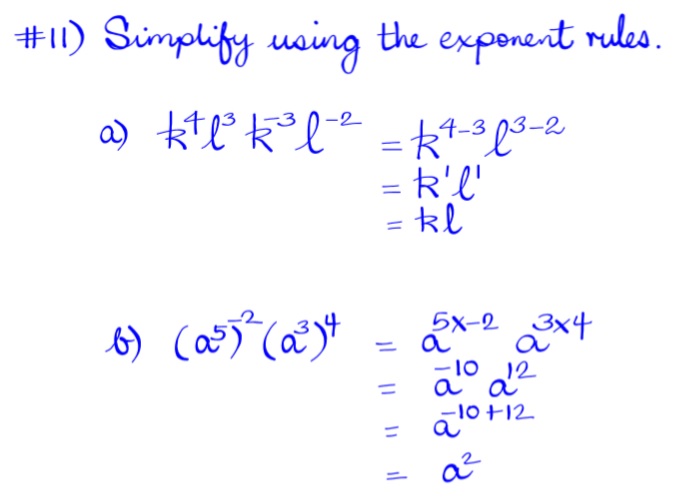 #11) Simplify using the exponent rules.
a) k⁴l³ k⁻³l⁻² = k⁴⁻³l³⁻²
= k¹l¹
= kl
b) (a⁵)⁻²(a³)⁴ = a⁵ˣ⁻² a³ˣ⁴
= a⁻¹⁰ a¹²
= a⁻¹⁰⁺¹²
= a²